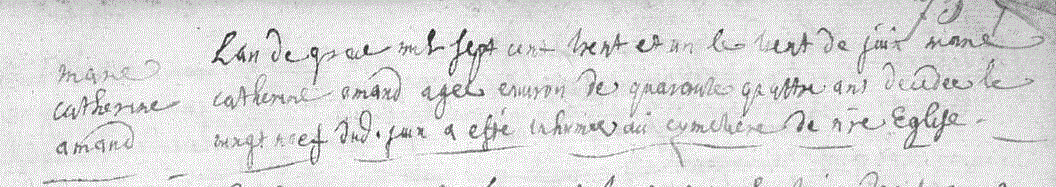 marie
catherine
amand
Lan de grace mil sept cent trent et un le trent de juin marie
catherine amand agee environ de quarante quattre ans decedee le
vingt noef dud. juin a esté inhumee au cymetiere de nre Eglise.